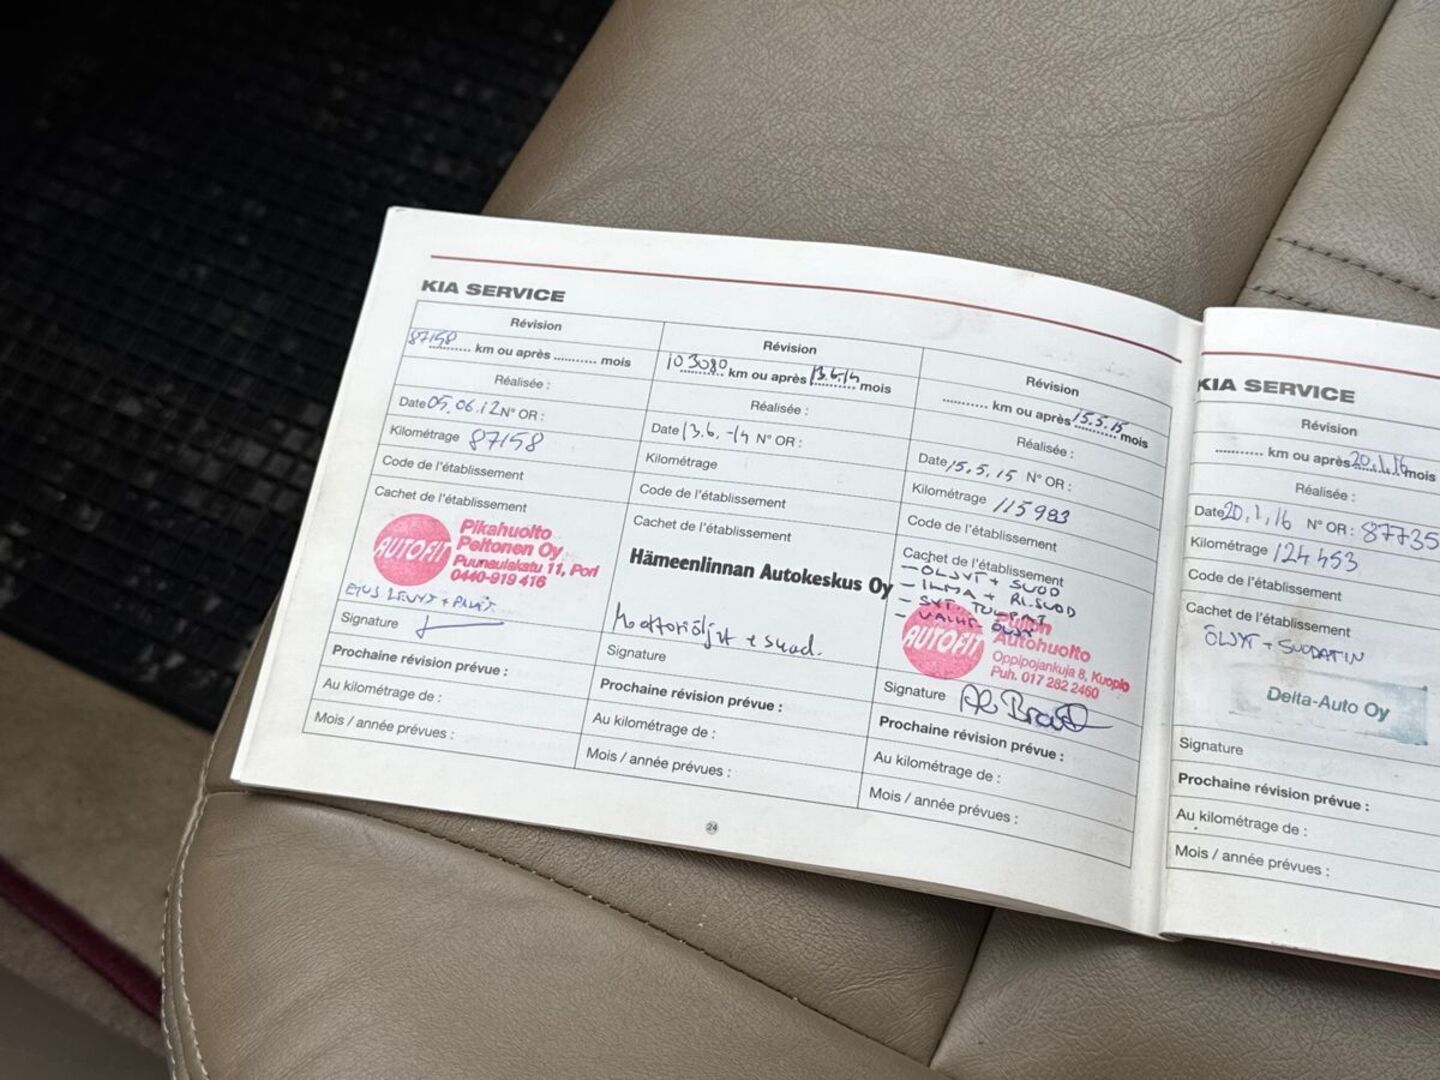 KIA SERVICE
Révision
87158 ........... km ou après ........... mois
Réalisée :
Date 05.06.12 N° OR :
Kilométrage 87158
Code de l'établissement
Cachet de l'établissement
AUTOFIT
Pikahuolto
Peltonen Oy
Puunaulakatu 11, Pori
0440-919 416
ETUS. LEVYT + PALAT.
Signature
Prochaine révision prévue :
Au kilométrage de :
Mois / année prévues :
Révision
103080 km ou après 13.6.14 mois
Réalisée :
Date 13.6.-14 N° OR :
Kilométrage
Code de l'établissement
Cachet de l'établissement
Hämeenlinnan Autokeskus Oy
Moottoriöljyt + suod.
Signature
Prochaine révision prévue :
Au kilométrage de :
Mois / année prévues :
Révision
........... km ou après 15.5.15 mois
Réalisée :
Date 15.5.15 N° OR :
Kilométrage 115983
Code de l'établissement
Cachet de l'établissement
- ÖLJYT + SUOD
- ILMA + RI.SUOD
- SYT. TULPAT
AUTOFIT
Autohuolto
Oppipojankuja 8, Kuopio
Puh. 017 282 2460
Signature
Prochaine révision prévue :
Au kilométrage de :
Mois / année prévues :
24
KIA SERVICE
Révision
........... km ou après 20.1.16 mois
Réalisée :
Date 20.1.16 N° OR : 87735
Kilométrage 124453
Code de l'établissement
Cachet de l'établissement
ÖLJYT + SUODATIN
Delta-Auto Oy
Signature
Prochaine révision prévue :
Au kilométrage de :
Mois / année prévues :